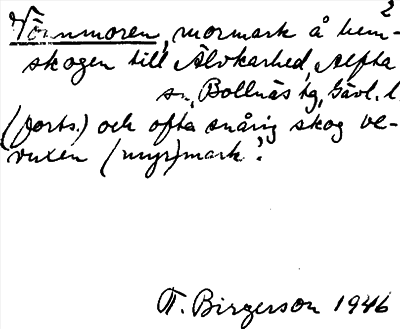 2
Törnmoren, mormark å hem-
skogen till Älvkarhed, Alfta
sn, Bollnäs tg, Gävl. l.
(forts.) och ofta snårig skog be-
vuxen (myr)mark".
T. Birgerson 1946